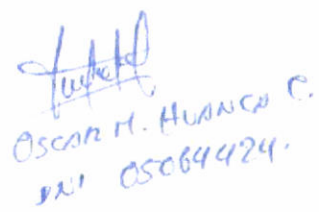 OSCAR M. HUANCA C.
DNI 05064424.